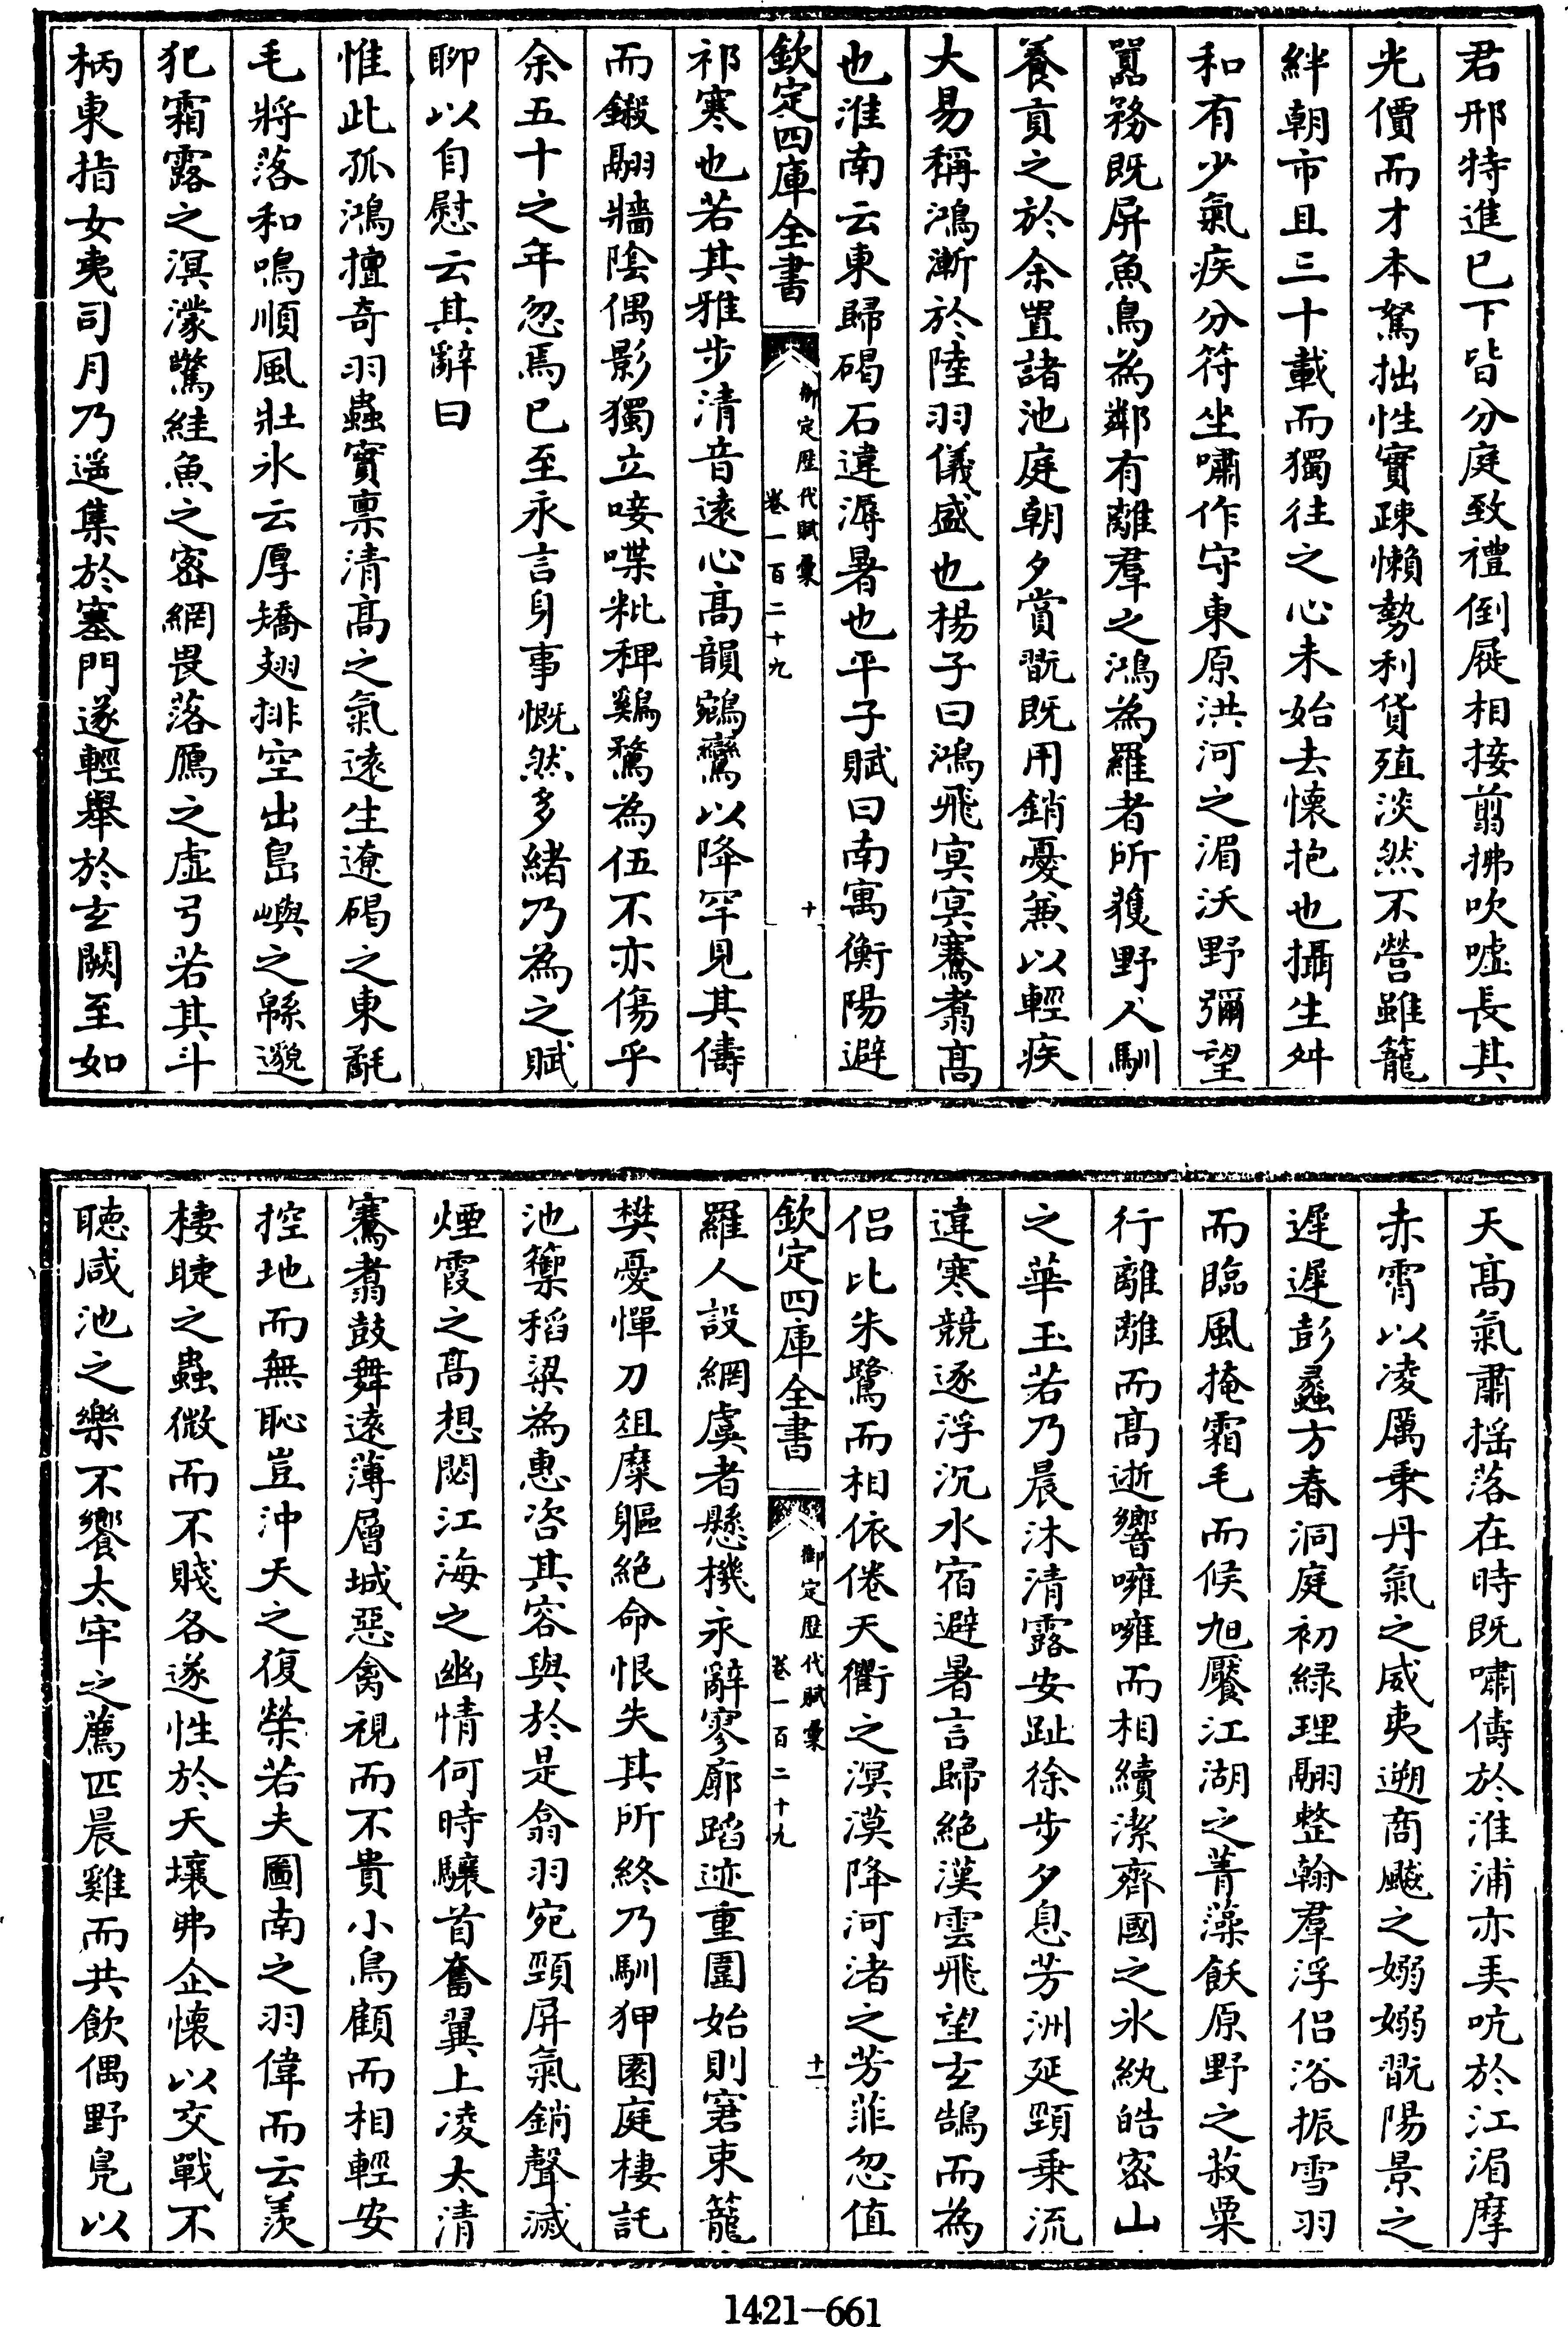 君邢特進已下皆分庭致禮倒屣相接翦拂吹噓長其
光價而才本駑拙性實疎懶勢利貨殖淡然不營雖籠
絆朝市且三十載而獨往之心未始去懷抱也攝生舛
和有少氣疾分符坐嘯作守東原洪河之湄沃野彌望
囂務既屏魚鳥為鄰有離羣之鴻為羅者所獲野人馴
養貢之於余置諸池庭朝夕賞翫既用銷憂兼以輕疾
大易稱鴻漸於陸羽儀盛也楊子曰鴻飛冥冥騫翥高
也淮南云東歸碣石違溽暑也平子賦曰南寓衡陽避
欽定四庫全書
御定歷代賦彙
卷一百二十九
十
祁寒也若其雅步清音遠心高韻鵷鸞以降罕見其儔
而鎩翮牆陰偶影獨立唼喋粃稗雞鶩為伍不亦傷乎
余五十之年忽焉已至永言身事慨然多緒乃為之賦
聊以自慰云其辭曰
惟此孤鴻擅奇羽蟲實禀清高之氣遠生遼碣之東氄
毛將落和鳴順風壯氷云厚矯翅排空出島嶼之緜邈
犯霜露之溟濛驚絓魚之密網畏落鴈之虛弓若其斗
柄東指女夷司月乃遥集於塞門遂輕舉於玄闕至如
天高氣肅搖落在時既嘯儔於淮浦亦弄吭於江湄摩
赤霄以凌厲乗丹氣之威夷遡商飇之嫋嫋翫陽景之
遲遲彭蠡方春洞庭初緑理翮整翰羣浮侣浴振雪羽
而臨風掩霜毛而候旭饜江湖之菁藻飫原野之菽粟
行離離而高逝響噰噰而相續潔齊國之氷紈皓密山
之華玉若乃晨沐清露安趾徐步夕息芳洲延頸乗流
違寒競逐浮沉水宿避暑言歸絶漢雲飛望玄鵠而為
侣比朱鷺而相依倦天衢之溟漠降河渚之芳菲忽值
欽定四庫全書
御定歷代賦彙
卷一百二十九
十一
羅人設網虞者懸機永辭寥廓蹈迹重圍始則窘束籠
樊憂憚刀俎糜軀絶命恨失其所終乃馴狎園庭棲託
池籞稻粱為惠咨其容與於是翕羽宛頸屏氣銷聲滅
煙霞之高想悶江海之幽情何時驤首奮翼上凌太清
騫翥鼓舞遠薄層城惡禽視而不貴小鳥顧而相輕安
控地而無恥豈沖天之復榮若夫圖南之羽偉而云羨
棲睫之蟲微而不賤各遂性於天壤弗企懷以交戰不
聽咸池之樂不饗太牢之薦匹晨雞而共飲偶野鳬以
1421-661